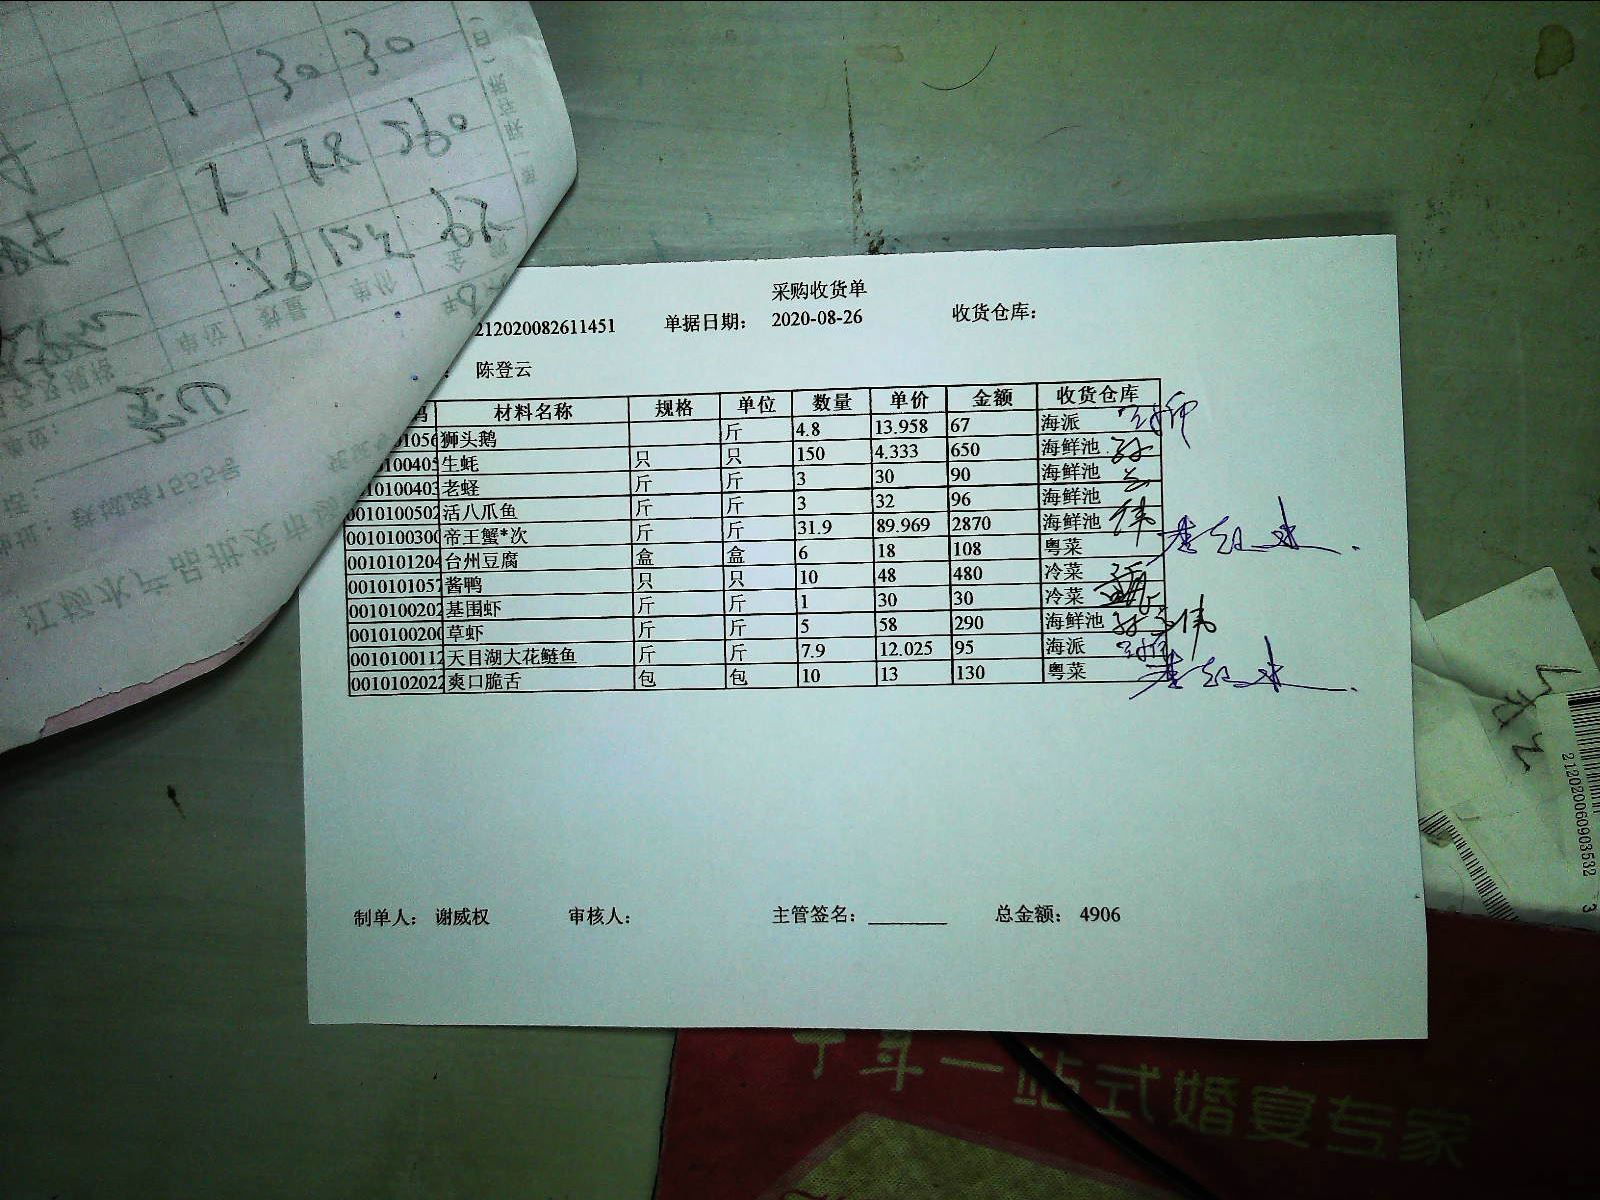 采购收货单
212020082611451 单据日期： 2020-08-26 收货仓库：
陈登云
码 材料名称 规格 单位 数量 单价 金额 收货仓库
01056 狮头鹅 斤 4.8 13.958 67 海派
0100405 生蚝 只 只 150 4.333 650 海鲜池
10100403 老蛏 斤 斤 3 30 90 海鲜池
0010100502 活八爪鱼 斤 斤 3 32 96 海鲜池
0010100300 帝王蟹*次 斤 斤 31.9 89.969 2870 海鲜池
0010101204 台州豆腐 盒 盒 6 18 108 粤菜
0010101057 酱鸭 只 只 10 48 480 冷菜
0010100202 基围虾 斤 斤 1 30 30 冷菜
0010100200 草虾 斤 斤 5 58 290 海鲜池
0010100112 天目湖大花鲢鱼 斤 斤 7.9 12.025 95 海派
0010102022 爽口脆舌 包 包 10 13 130 粤菜
制单人： 谢威权 审核人： 主管签名： 总金额： 4906
1 30 30
单位 数量 单价 金
江杨水产品批发市场
1555号
2120200609035323
十年一站式婚宴专家